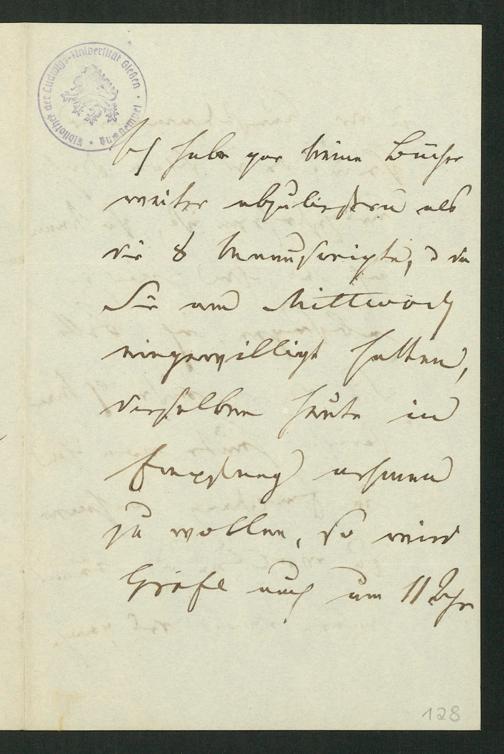 Bibliothek der Ludwigs-Universität Gießen
Ich habe gar keine Bücher
weiter abzuliefern als
die 8 Manuscripte, & da
Sie am Mittwoch
eingewilligt hatten,
dieselben heute in
Empfang nehmen
zu wollen, so wird
Gräfe auch um 11 Uhr
128